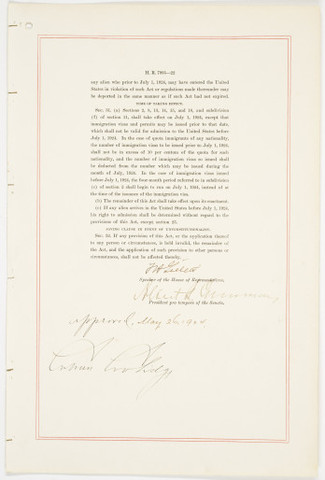 H. R. 7995—22
any alien who prior to July 1, 1924, may have entered the United
States in violation of such Act or regulations made thereunder may
be deported in the same manner as if such Act had not expired.
TIME OF TAKING EFFECT.
Sec. 31. (a) Sections 2, 8, 13, 14, 15, and 16, and subdivision
(f) of section 11, shall take effect on July 1, 1924, except that
immigration visas and permits may be issued prior to that date,
which shall not be valid for admission to the United States before
July 1, 1924. In the case of quota immigrants of any nationality,
the number of immigration visas to be issued prior to July 1, 1924,
shall not be in excess of 10 per centum of the quota for such
nationality, and the number of immigration visas so issued shall
be deducted from the number which may be issued during the
month of July, 1924. In the case of immigration visas issued
before July 1, 1924, the four-month period referred to in subdivision
(c) of section 2 shall begin to run on July 1, 1924, instead of at the
time of the issuance of the immigration visa.
(b) The remainder of this Act shall take effect upon its enactment.
(c) If any alien arrives in the United States before July 1, 1924,
his right to admission shall be determined without regard to the
provisions of this Act, except section 23.
SAVING CLAUSE IN EVENT OF UNCONSTITUTIONALITY.
Sec. 32. If any provision of this Act, or the application thereof
to any person or circumstances, is held invalid, the remainder of
the Act, and the application of such provision to other persons or
circumstances, shall not be affected thereby.
F H Gillett
Speaker of the House of Representatives.
Albert B. Cummins
President pro tempore of the Senate.
Approved, May 26, 1924
Calvin Coolidge